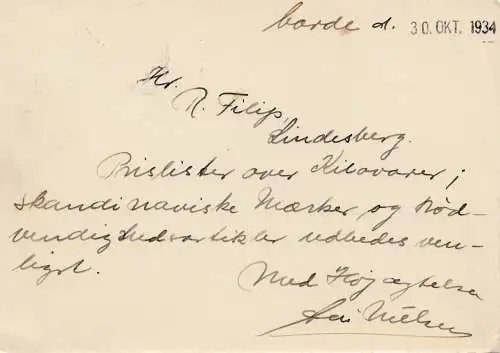 Corde d. 30. OKT. 1934
Hr.
R. Filip,
Lindesberg.
Prislister over Kilovarer i
skandinaviske Mærker og Nød-
vendighedsartikler udbedes ven-
ligst.
Med Højagtelse
Nielsen